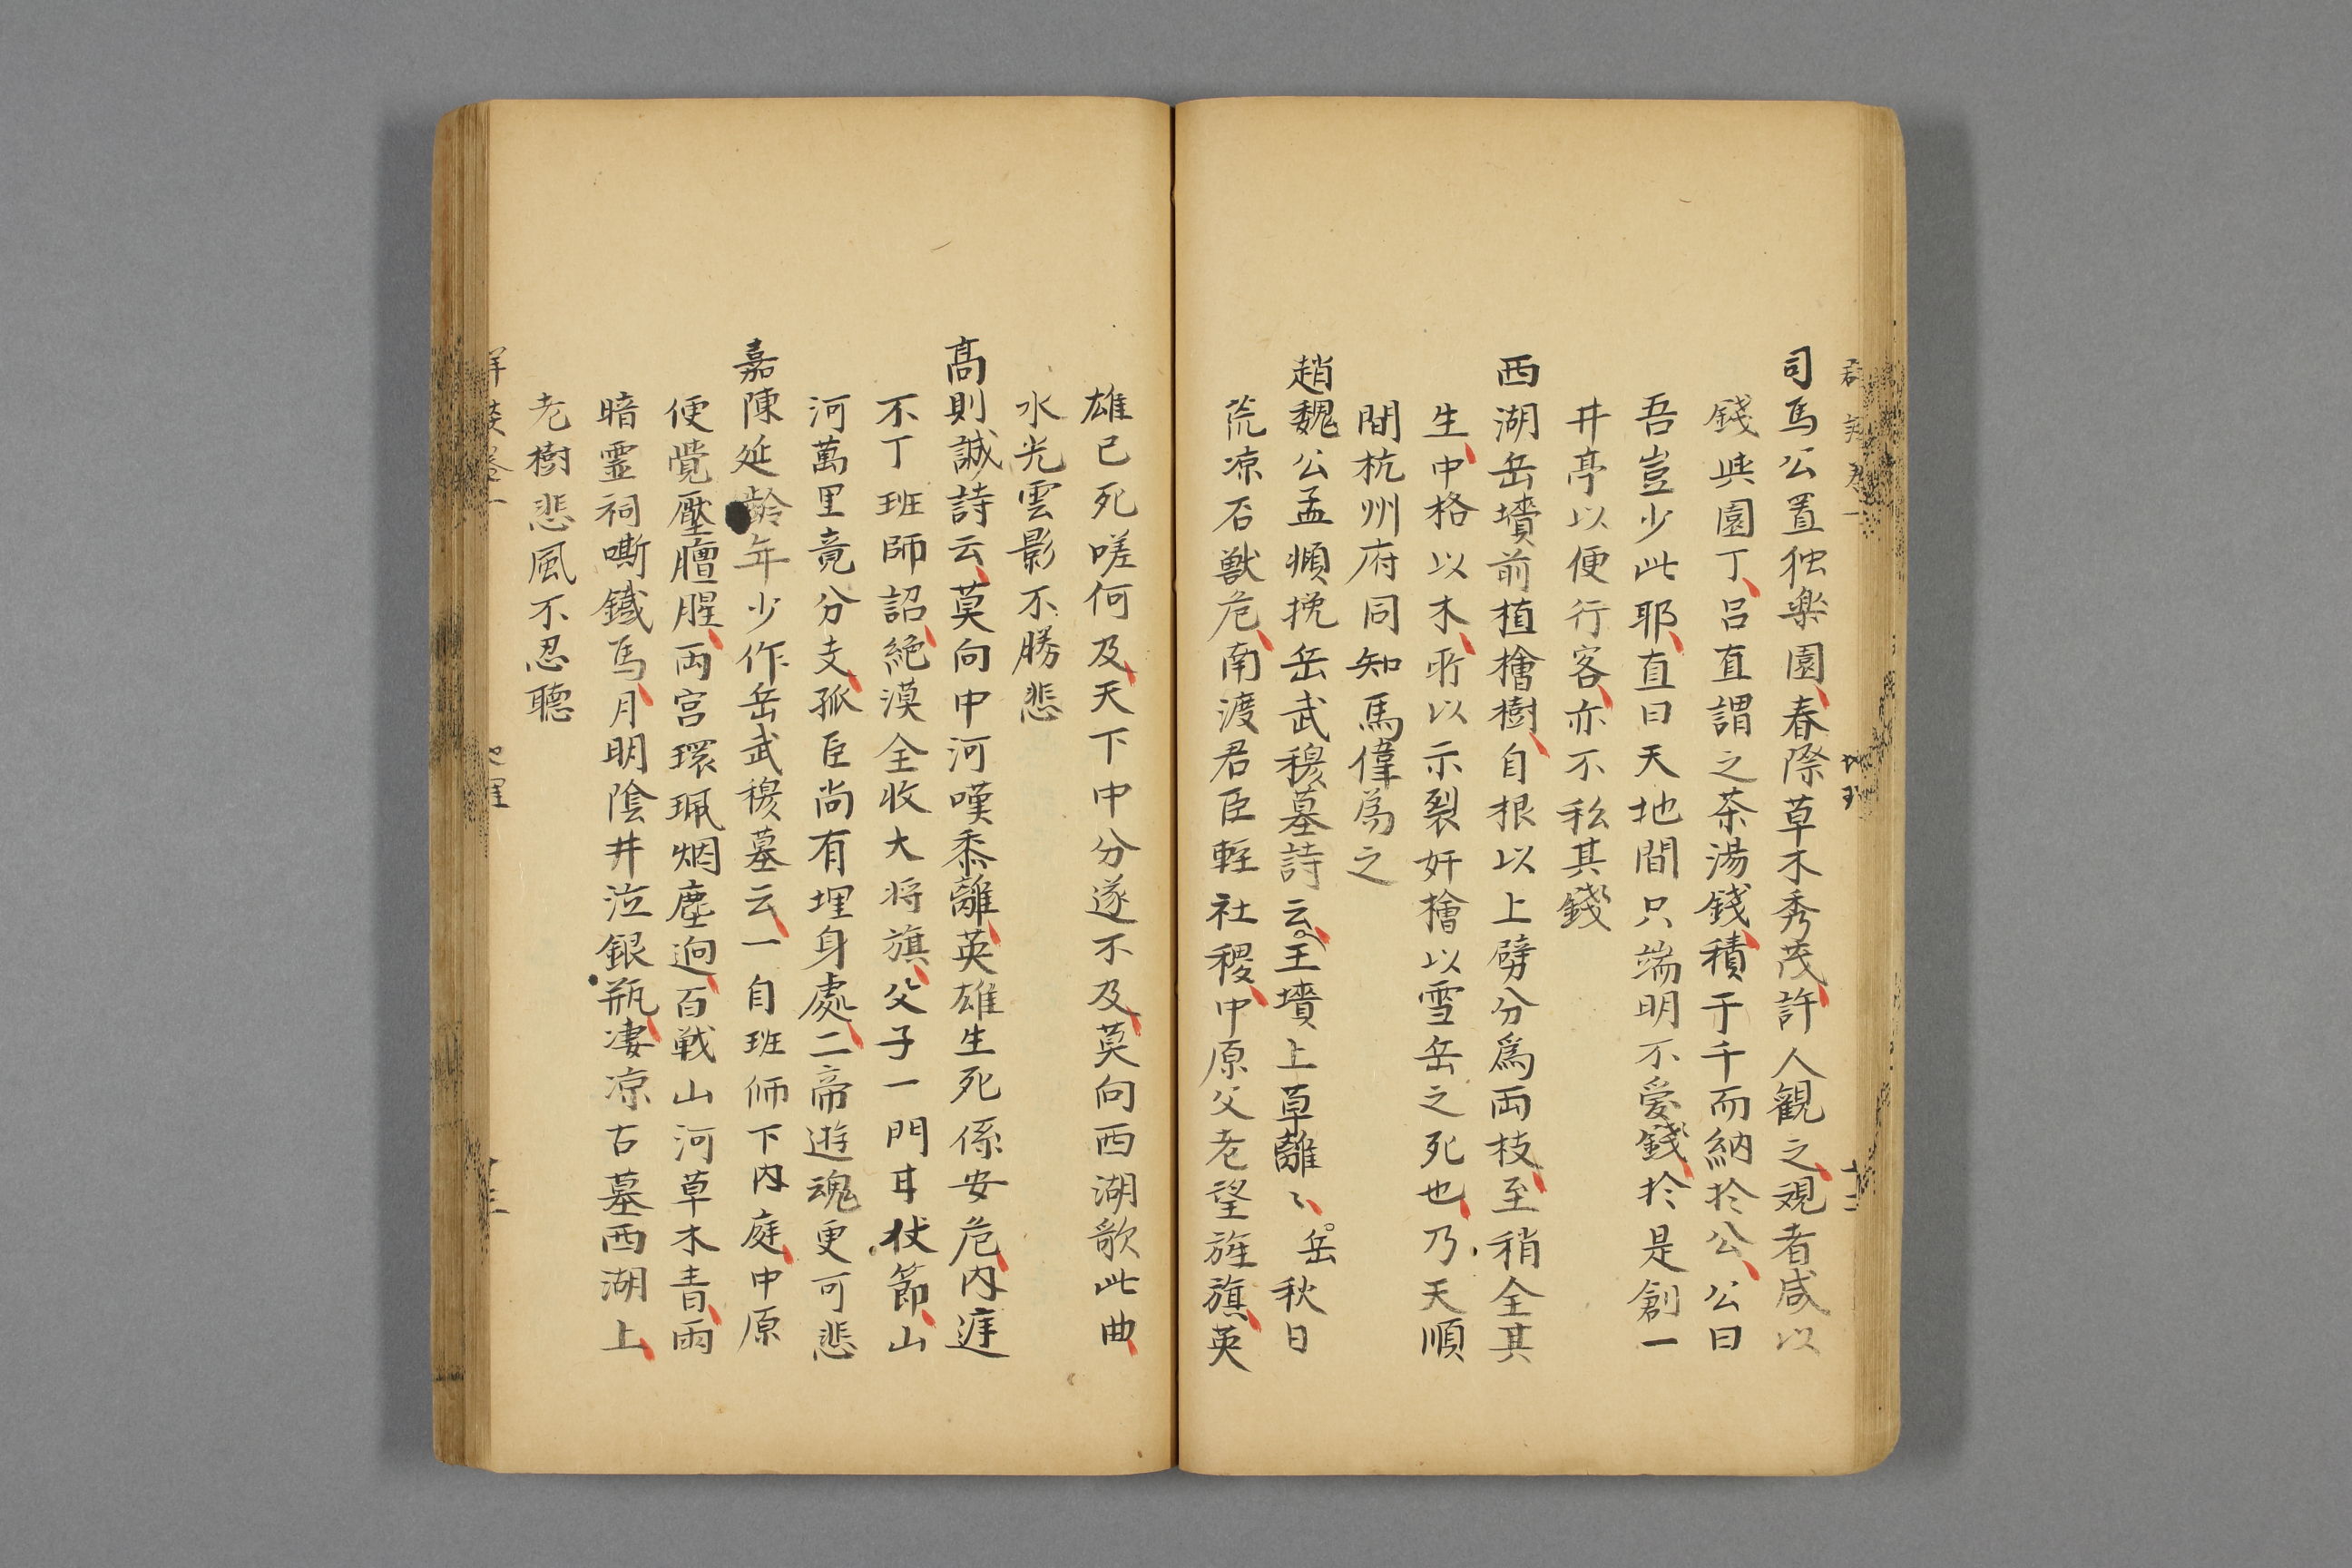 司馬公置独楽園春際草木秀茂許人観之視者咸以
錢與園丁呂直謂之茶湯錢積于千而納於公公曰
吾豈少此耶直曰天地間只端明不愛錢於是創一
井亭以便行客亦不私其錢
西湖岳墳前植檜樹自根以上劈分爲兩枝至稍全其
生中格以木所以示裂奸檜以雪岳之死也乃天順
間杭州府同知馬偉為之
趙魏公孟頫挽岳武穆墓詩云王墳上草離〻岳秋日
荒凉石獣危南渡君臣軽社稷中原父老望旌旗英
雄已死嗟何及天下中分遂不及莫向西湖歌此曲
水光雲影不勝悲
高則誠詩云莫向中河嘆黍離英雄生死係安危内
不丁班師詔絶漠全收大将旗父子一門
節山
河萬里竟分支孤臣尚有埋身處二帝遊魂更可悲
嘉陳延齡年少作岳武穆墓云一自班师下内庭中原
便覺壓膻腥両宮環珮烟塵逈百戦山河草木青雨
暗霊祠嘶鐡馬月明陰井泣銀瓶凄凉古墓西湖上
老樹悲風不忍聴